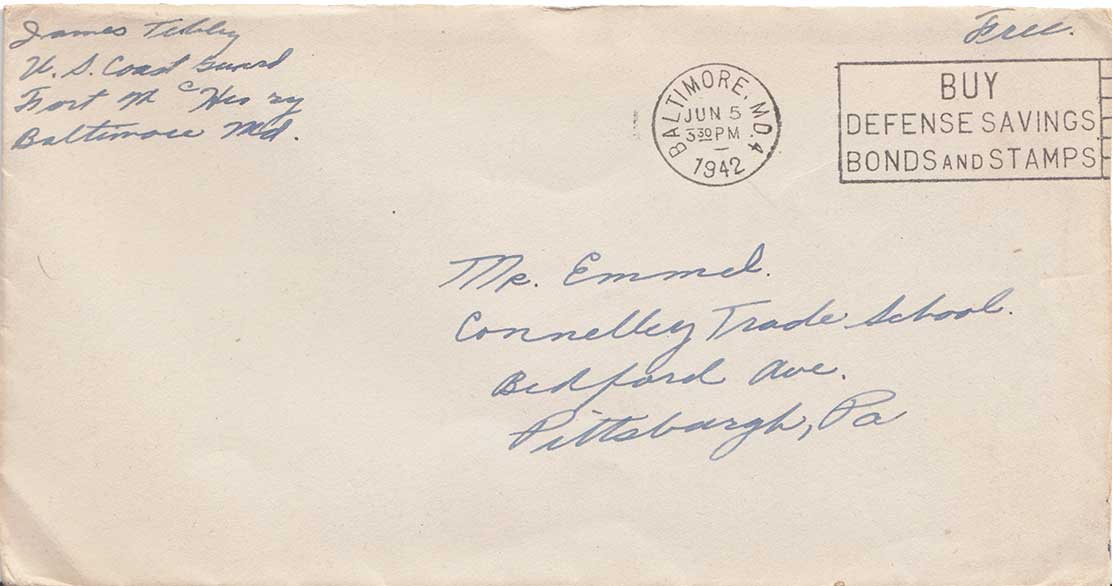 James Tebley
U. S. Coast Guard
Fort McHenry
Baltimore Md.
Free.
BALTIMORE, MD. 4
JUN 5
3 30 PM
1942
BUY
DEFENSE SAVINGS
BONDS AND STAMPS
Mr. Emmel.
Connelley Trade School.
Bedford Ave.
Pittsburgh, Pa